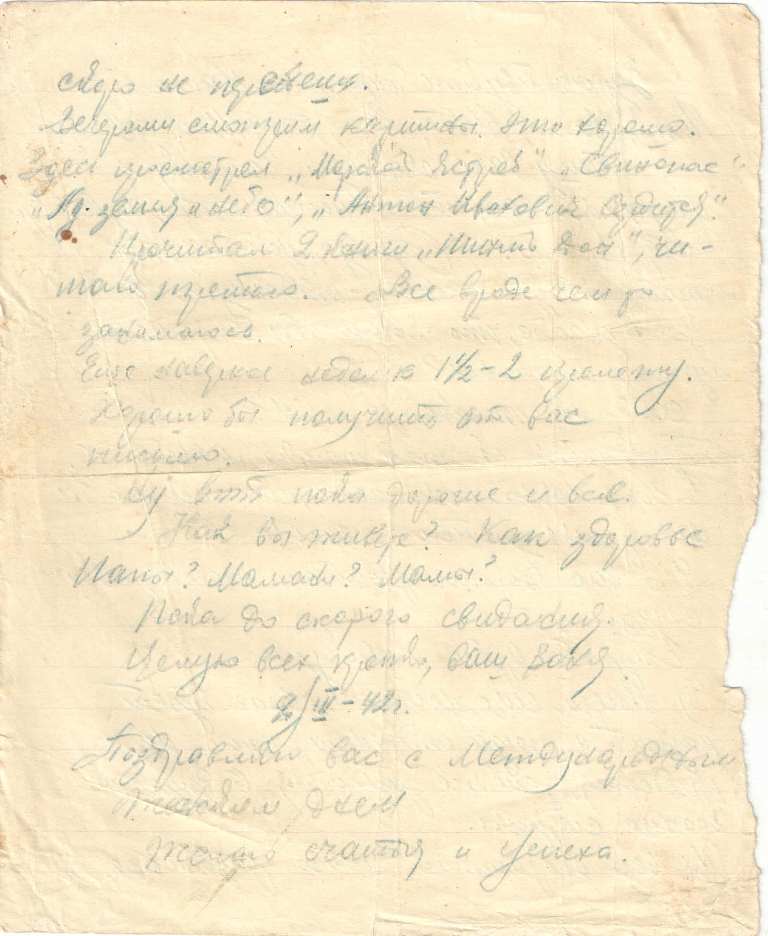 скоро не
Вечерами смотрим картины. Это хорошо.
Здесь просмотрел „Морской Ястреб" „Свинопас"
„ земля и небо", „Антон Иванович сердится".
Прочитал 2 книги „Тихий Дон", чи-
таю третью. Все вроде чем то
занимаюсь.
Еще наверное недели 1½-2 проле­жу.
Хорошо бы получить от вас
письмо.
Ну вот пока дорогие и все.
Как вы живете? Как здоровье
Папы? Мамы?
Пока до скорого свидания.
Целую всех крепко, ваш
2/III-42г.
Поздравляю вас с Международным
женским днем
Желаю счастья и успеха.